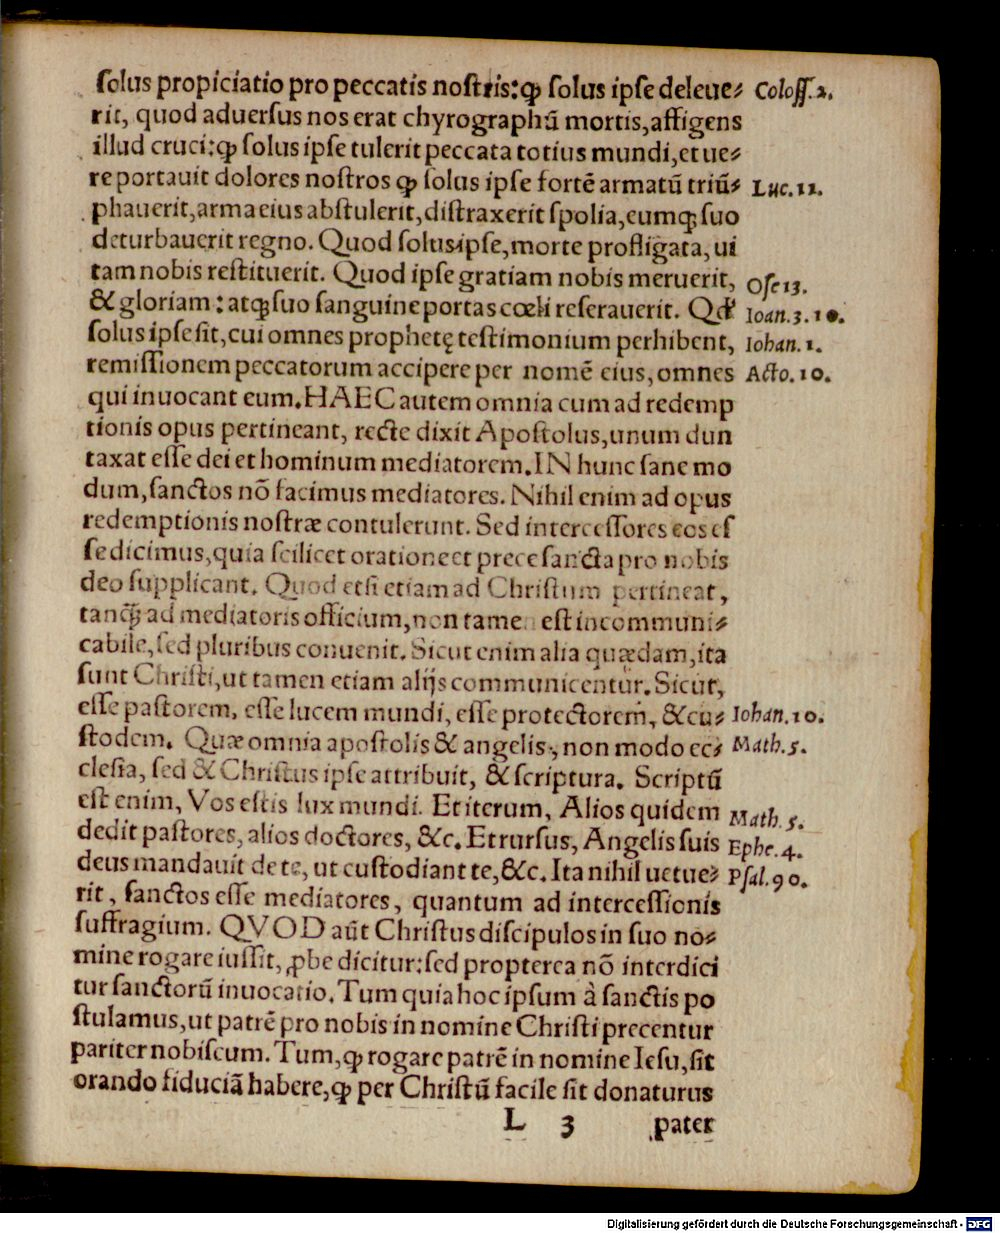 ſolus propiciatio pro peccatis noſtris:ꝙ ſolus ipſe deleue⸗ Coloſſ.2.
rit, quod aduerſus nos erat chyrographū mortis,affigens
illud cruci:ꝙ ſolus ipſe tulerit peccata totius mundi,et ue⸗
re portauit dolores noſtros ꝙ ſolus ipſe fortē armatū triū⸗ Luc.11.
phauerit,arma eius abſtulerit,diſtraxerit ſpolia,eumqꝫ ſuo
deturbauerit regno. Quod ſolus ipſe,morte profligata,ui
tam nobis reſtituerit. Quod ipſe gratiam nobis meruerit, Oſe 13.
& gloriam: atqꝫ ſuo ſanguine portas cœli reſerauerit. Qd' Ioan.3.10.
ſolus ipſe ſit,cui omnes prophetę teſtimonium perhibent, Iohan.1.
remiſſionem peccatorum accipere per nomē eius,omnes Acto.10.
qui inuocant eum.HAEC autem omnia cum ad redemp
tionis opus pertineant, recte dixit Apoſtolus,unum dun
taxat eſſe dei et hominum mediatorem.IN hunc ſane mo
dum,ſanctos nō facimus mediatores. Nihil enim ad opus
redemptionis noſtræ contulerunt. Sed interceſſores eos eſ
ſe dicimus,quia ſcilicet oratione et prece ſancta pro nobis
deo ſupplicant. Quod etſi etiam ad Chriſtum pertineat,
tanqꝫ ad mediatoris officium,non tamen eſt incommuni⸗
cabile,ſed pluribus conuenit. Sicut enim alia quædam,ita
ſunt Chriſti,ut tamen etiam alijs communicentur. Sicut,
eſſe paſtorem, eſſe lucem mundi, eſſe protectorem, & cu⸗ Iohan.10.
ſtodem. Quæ omnia apoſtolis & angelis, non modo ec⸗ Math.5.
cleſia, ſed & Chriſtus ipſe attribuit, & ſcriptura. Scriptū
eſt enim, Vos eſtis lux mundi. Et iterum, Alios quidem Math.5.
dedit paſtores, alios doctores, &c. Et rurſus, Angelis ſuis Ephe.4.
deus mandauit de te, ut cuſtodiant te,&c. Ita nihil uetue⸗ Pſal.90.
rit, ſanctos eſſe mediatores, quantum ad interceſſionis
ſuffragium. QVOD aūt Chriſtus diſcipulos in ſuo no⸗
mine rogare iuſſit, ꝓbe dicitur:ſed propterea nō interdici
tur ſanctorū inuocatio. Tum quia hoc ipſum à ſanctis po
ſtulamus,ut patrē pro nobis in nomine Chriſti precentur
pariter nobiſcum. Tum,ꝙ rogare patrē in nomine Ieſu,ſit
orando fiduciā habere,ꝙ per Chriſtū facile ſit donaturus
L 3 pater
Digitalisierung gefördert durch die Deutsche Forschungsgemeinschaft - DFG